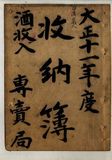 大正十一年度
收納簿
酒收入
專賣局